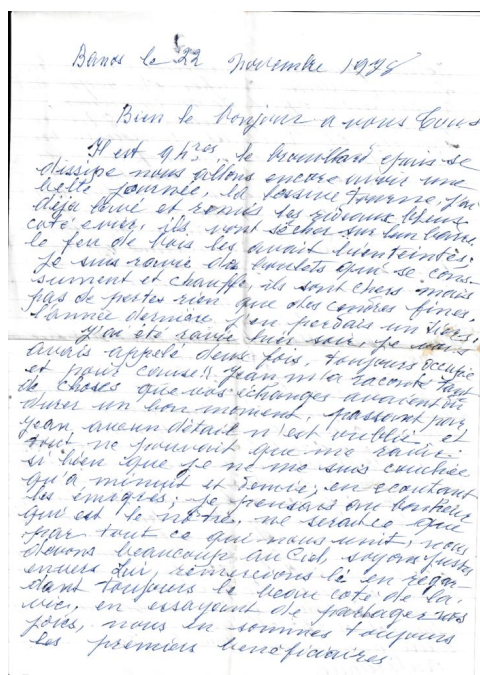 Banos le 22 novembre 1978
Bien le bonjour a vous Tous
Il est 9 hres, le brouillard epais se
dissipe nous allons encore avoir une
belle journée, la lessive tourne, j'ai
déja lavé et remis les rideaux
coté evier, ils vont sécher sur
le feu de bois les avait bien teintés.
je suis ravie des boulets qui se cons-
sument et chauffe, ils sont chers mais
pas de pertes rien que des cendres fines,
l'année dernière j'en perdais un tiers.
J'ai été ravie hier soir, je vous
avais appelé deux fois, toujours occupé
et pour cause!! Jean m'a raconté tant
de choses que vos échanges avaient dû
durer un bon moment, passant par
Jean, aucun détail n'est oublié et
tout ne pouvait que me ravir
si bien que je ne me suis couchée
qu'a minuit et demie, en ecoutant
les je pensais au bonheur
qui est le notre, ne serait ce que
par tout ce qui nous unit, nous
devons beaucoup au Ciel, soyons justes
envers Lui remercions le en regar-
dant toujours le beau coté de la
vie, en essayant de partager nos
joies, nous en sommes toujours
les premiers beneficiaires